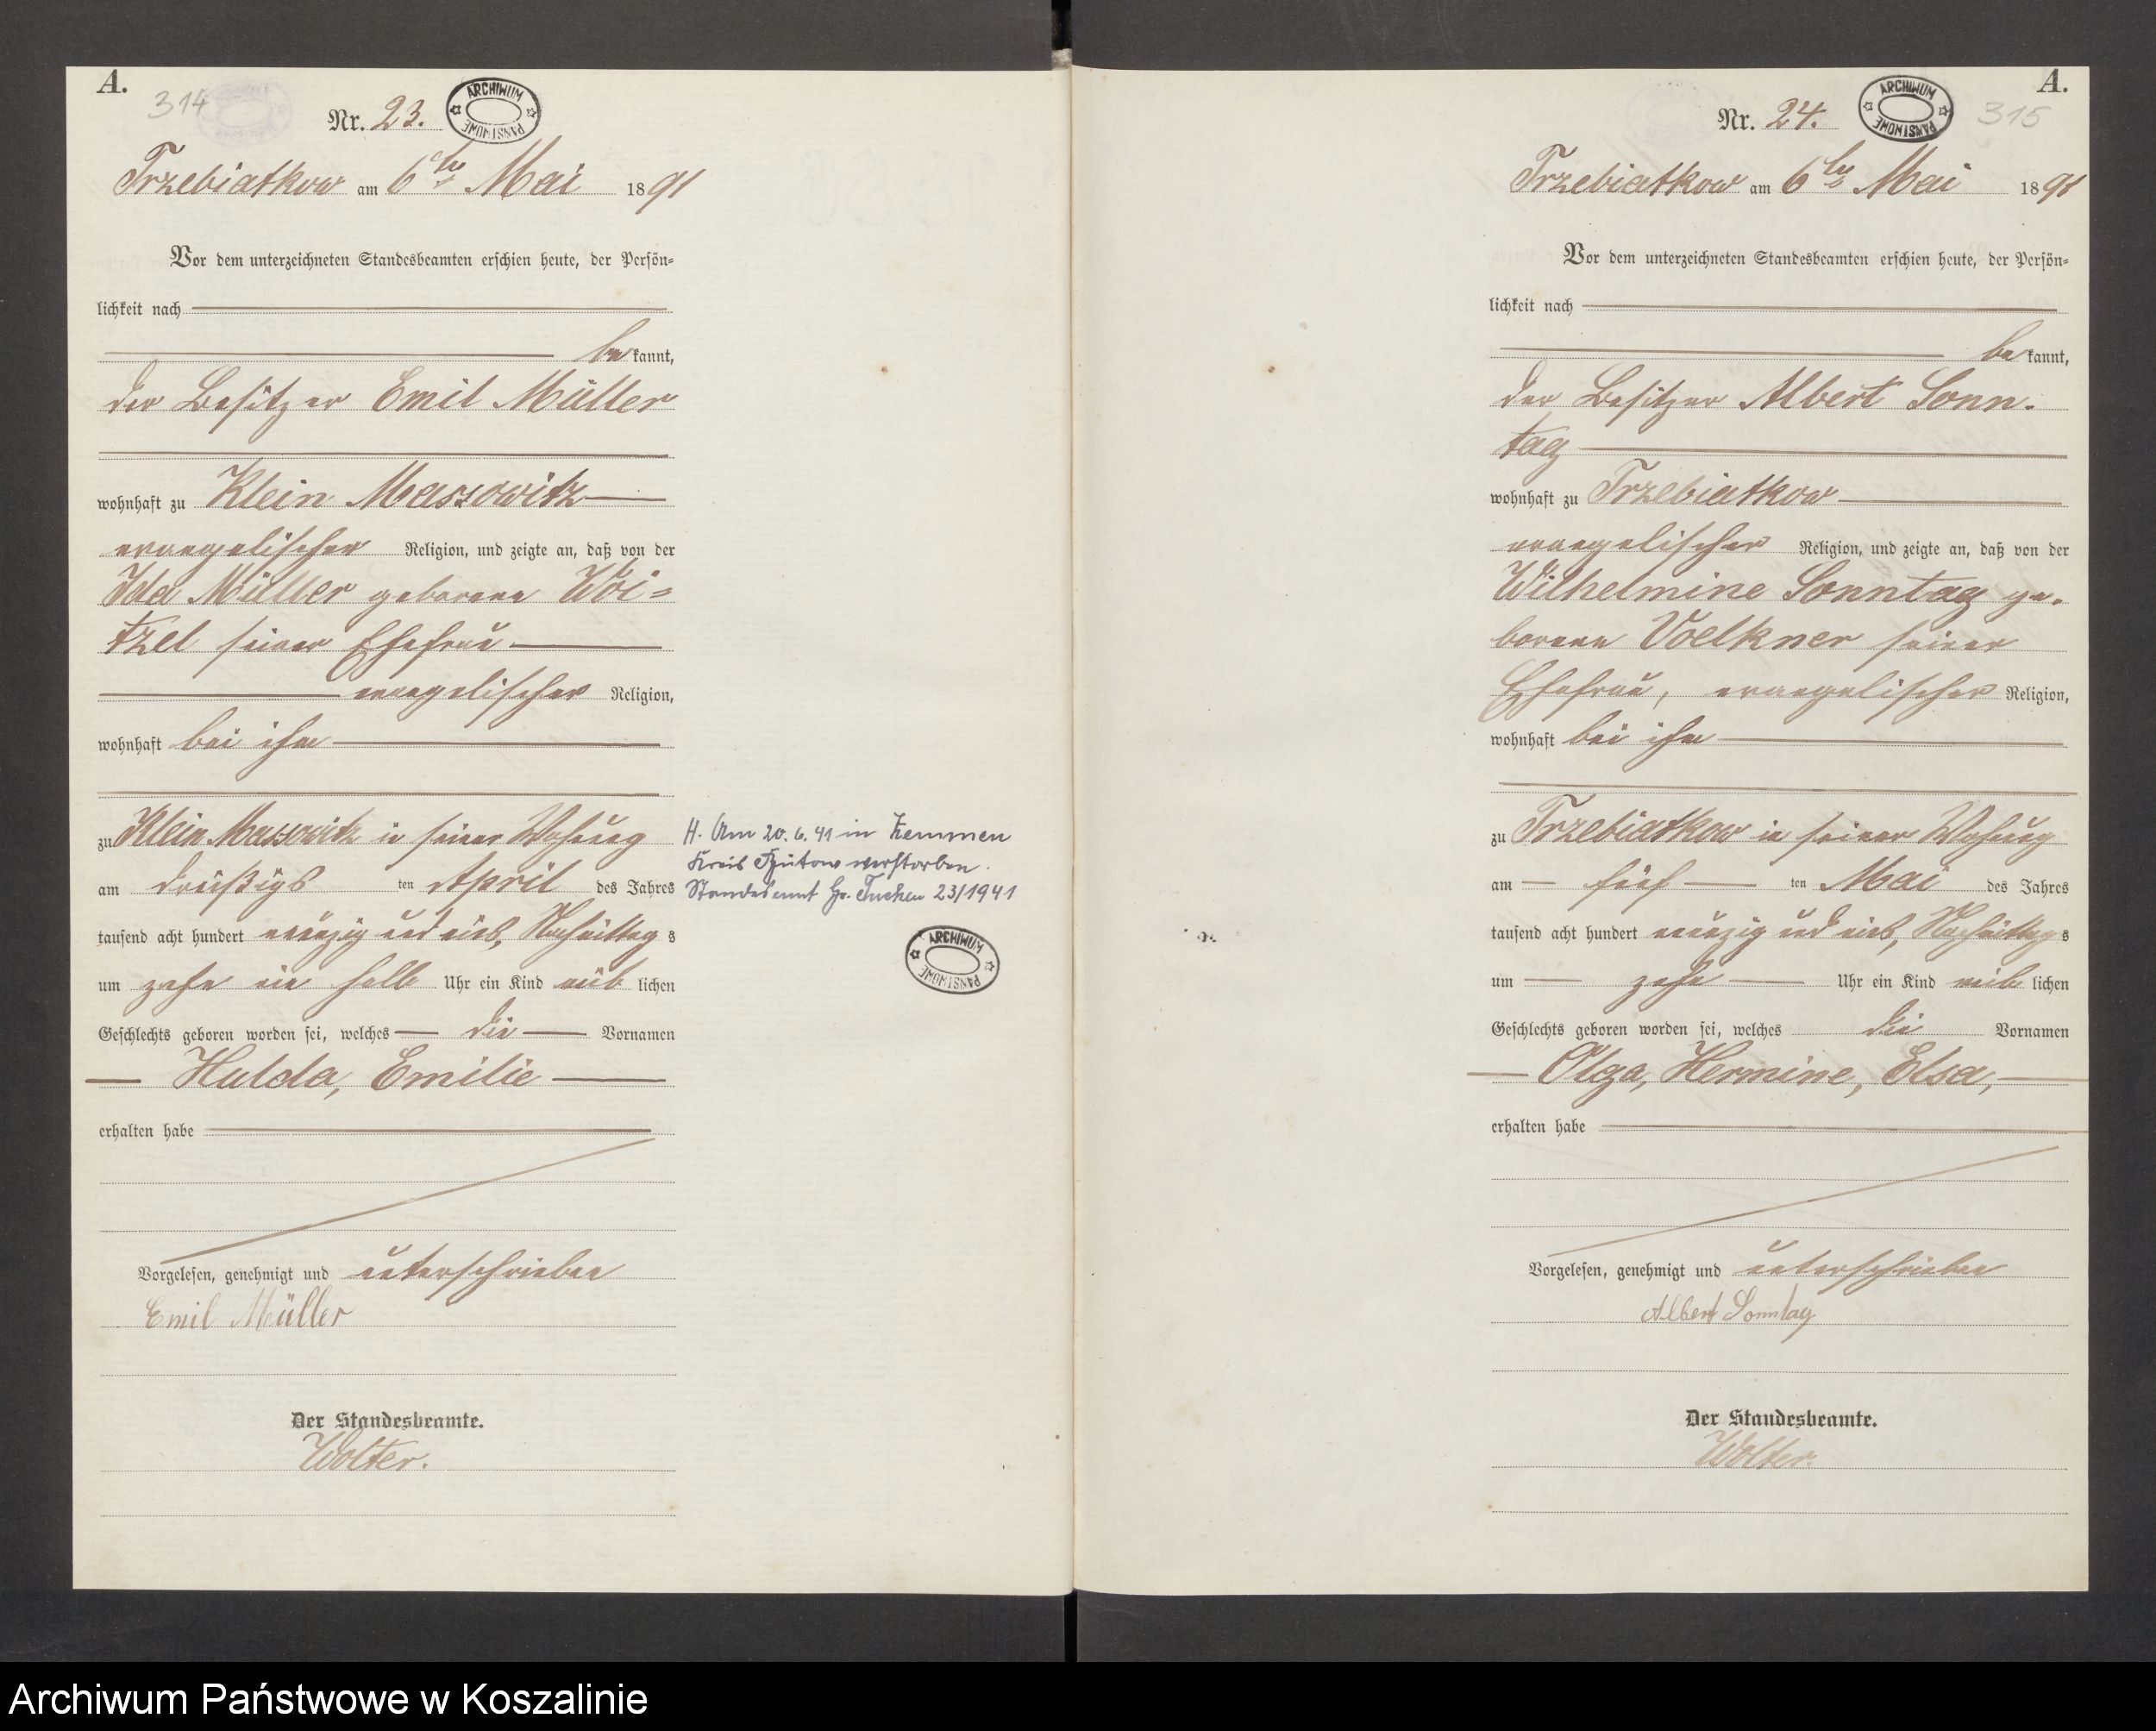 A.
314
Nr. 23.
ARCHIWUM PAŃSTWOWE
Trzebiatkow am 6ten Mai 1891
Vor dem unterzeichneten Standesbeamten erschien heute, der Persön-
lichkeit nach
bekannt,
der Besitzer Emil Müller
wohnhaft zu Klein Massowitz
evangelischer Religion, und zeigte an, daß von der
Ida Müller geborene Woi-
tzel seiner Ehefrau
evangelischer Religion,
wohnhaft bei ihm
zu Klein Massowitz in seiner Wohnung
am dreißigs ten April des Jahres
tausend acht hundert neunzig und eins, Nachmittag s
um zehn ein halb Uhr ein Kind weib lichen
Geschlechts geboren worden sei, welches die Vornamen
Hulda, Emilie
erhalten habe
Vorgelesen, genehmigt und unterschrieben
Emil Müller
Der Standesbeamte.
Wolter.
H. Am 20. 6. 41 in Zemmen
Kreis Bütow verstorben.
Standesamt Gr. Tuchen 23/1941
ARCHIWUM PAŃSTWOWE
A.
315
Nr. 24.
ARCHIWUM PAŃSTWOWE
Trzebiatkow am 6ten Mai 1891
Vor dem unterzeichneten Standesbeamten erschien heute, der Persön-
lichkeit nach
bekannt,
der Besitzer Albert Sonn-
tag
wohnhaft zu Trzebiatkow
evangelischer Religion, und zeigte an, daß von der
Wilhelmine Sonntag ge-
borene Voelkner seiner
Ehefrau, evangelischer Religion,
wohnhaft bei ihm
zu Trzebiatkow in seiner Wohnung
am fünf ten Mai des Jahres
tausend acht hundert neunzig und eins, Nachmittag s
um zehn Uhr ein Kind weib lichen
Geschlechts geboren worden sei, welches die Vornamen
Olga, Hermine, Elsa,
erhalten habe
Vorgelesen, genehmigt und unterschrieben
Albert Sonntag
Der Standesbeamte.
Wolter.
Archiwum Państwowe w Koszalinie